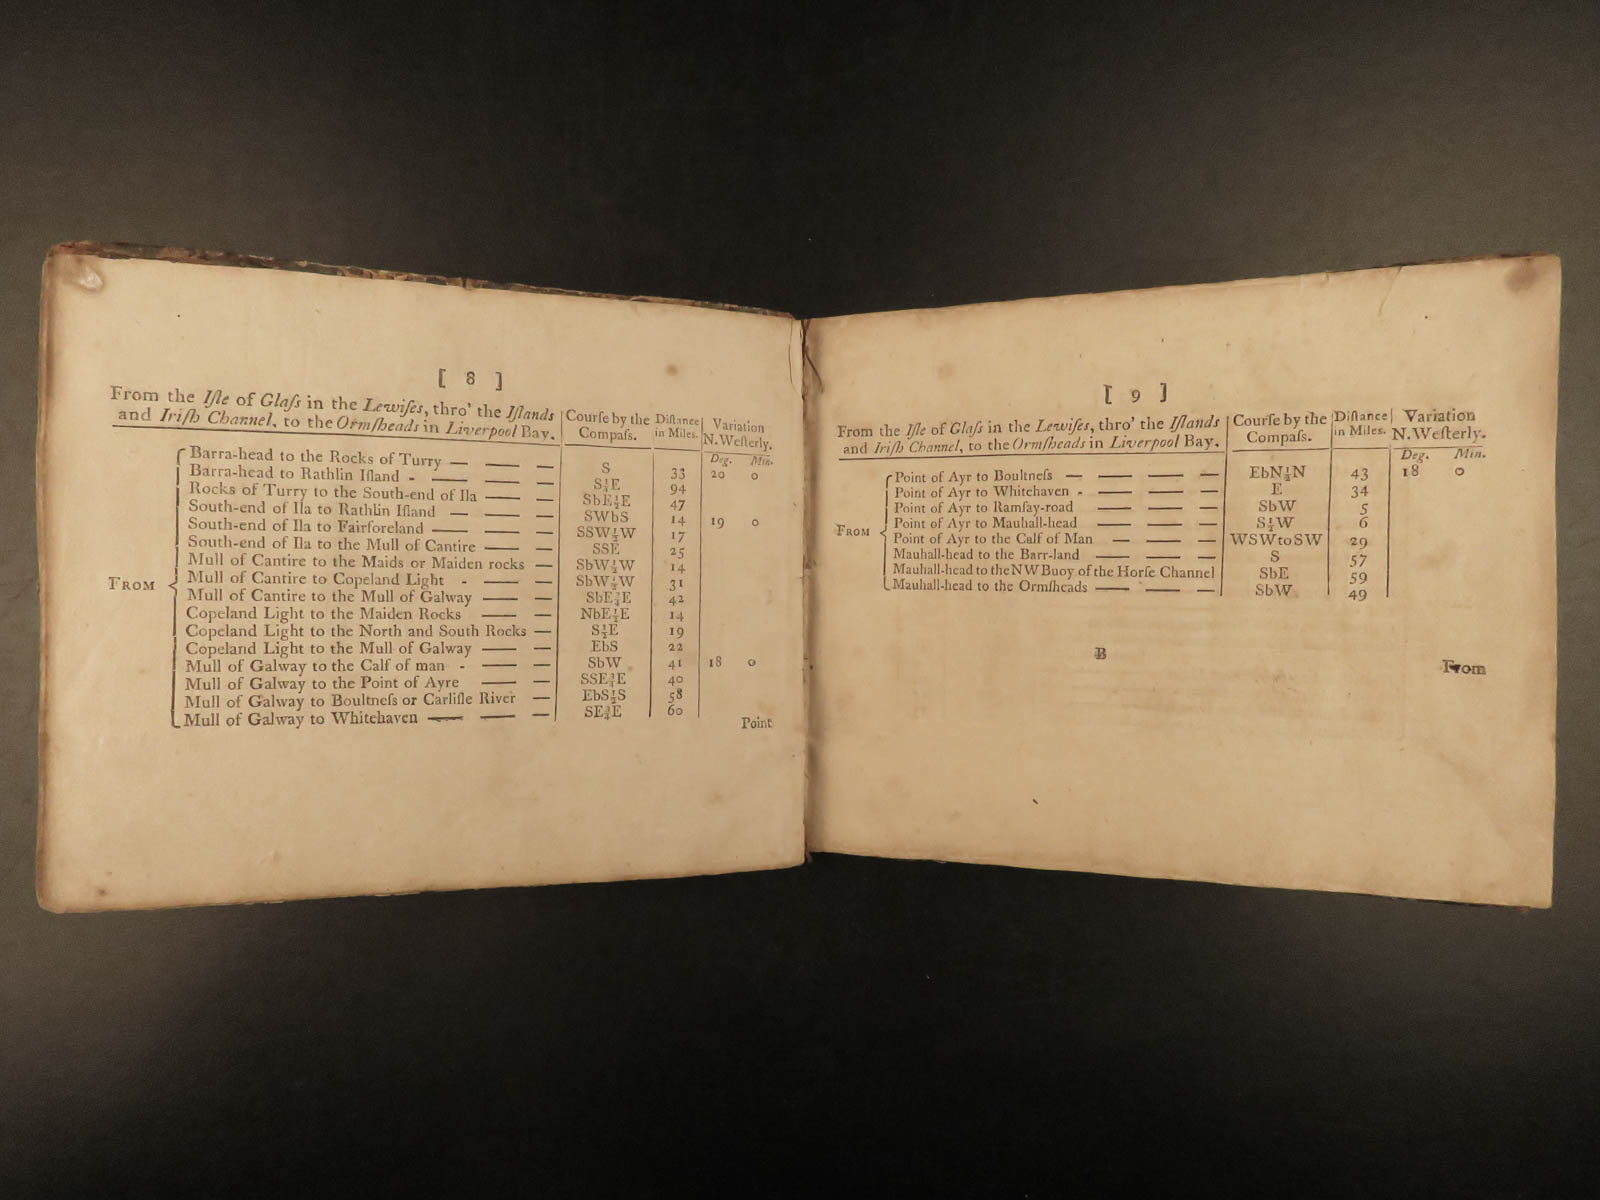 [ 8 ]
From the Iſle of Glaſs in the Lewiſes, thro' the Iſlands
and Iriſh Channel, to the Ormſheads in Liverpool Bay.
Courſe by the
Compaſs.
Diſtance
in Miles.
Variation
N. Weſterly.
Deg. Min.
FROM
Barra-head to the Rocks of Turry — — — S 33 20 0
Barra-head to Rathlin Iſland - — — — S¼E 94
Rocks of Turry to the South-end of Ila — — SbE½E 47
South-end of Ila to Rathlin Iſland — — — SWbS 14 19 0
South-end of Ila to Fairforeland — — — SSW½W 17
South-end of Ila to the Mull of Cantire — — SSE 25
Mull of Cantire to the Maids or Maiden rocks — SbW½W 14
Mull of Cantire to Copeland Light - — — SbW¼W 31
Mull of Cantire to the Mull of Galway — — SbE¾E 42
Copeland Light to the Maiden Rocks — — NbE½E 14
Copeland Light to the North and South Rocks — S½E 19
Copeland Light to the Mull of Galway — — EbS 22
Mull of Galway to the Calf of man - — — SbW 41 18 0
Mull of Galway to the Point of Ayre — — SSE¾E 40
Mull of Galway to Boultneſs or Carliſle River — EbS½S 58
Mull of Galway to Whitehaven — — — SE¾E 60
Point
[ 9 ]
From the Iſle of Glaſs in the Lewiſes, thro' the Iſlands
and Iriſh Channel, to the Ormſheads in Liverpool Bay.
Courſe by the
Compaſs.
Diſtance
in Miles.
Variation
N. Weſterly.
Deg. Min.
FROM
Point of Ayr to Boultneſs — — — — EbN½N 43 18 0
Point of Ayr to Whitehaven - — — — E 34
Point of Ayr to Ramſay-road — — — SbW 5
Point of Ayr to Mauhall-head — — — S½W 6
Point of Ayr to the Calf of Man — — — WSWtoSW 29
Mauhall-head to the Barr-land — — — S 57
Mauhall-head to the NW Buoy of the Horſe Channel SbE 59
Mauhall-head to the Ormſheads — — — SbW 49
B
From